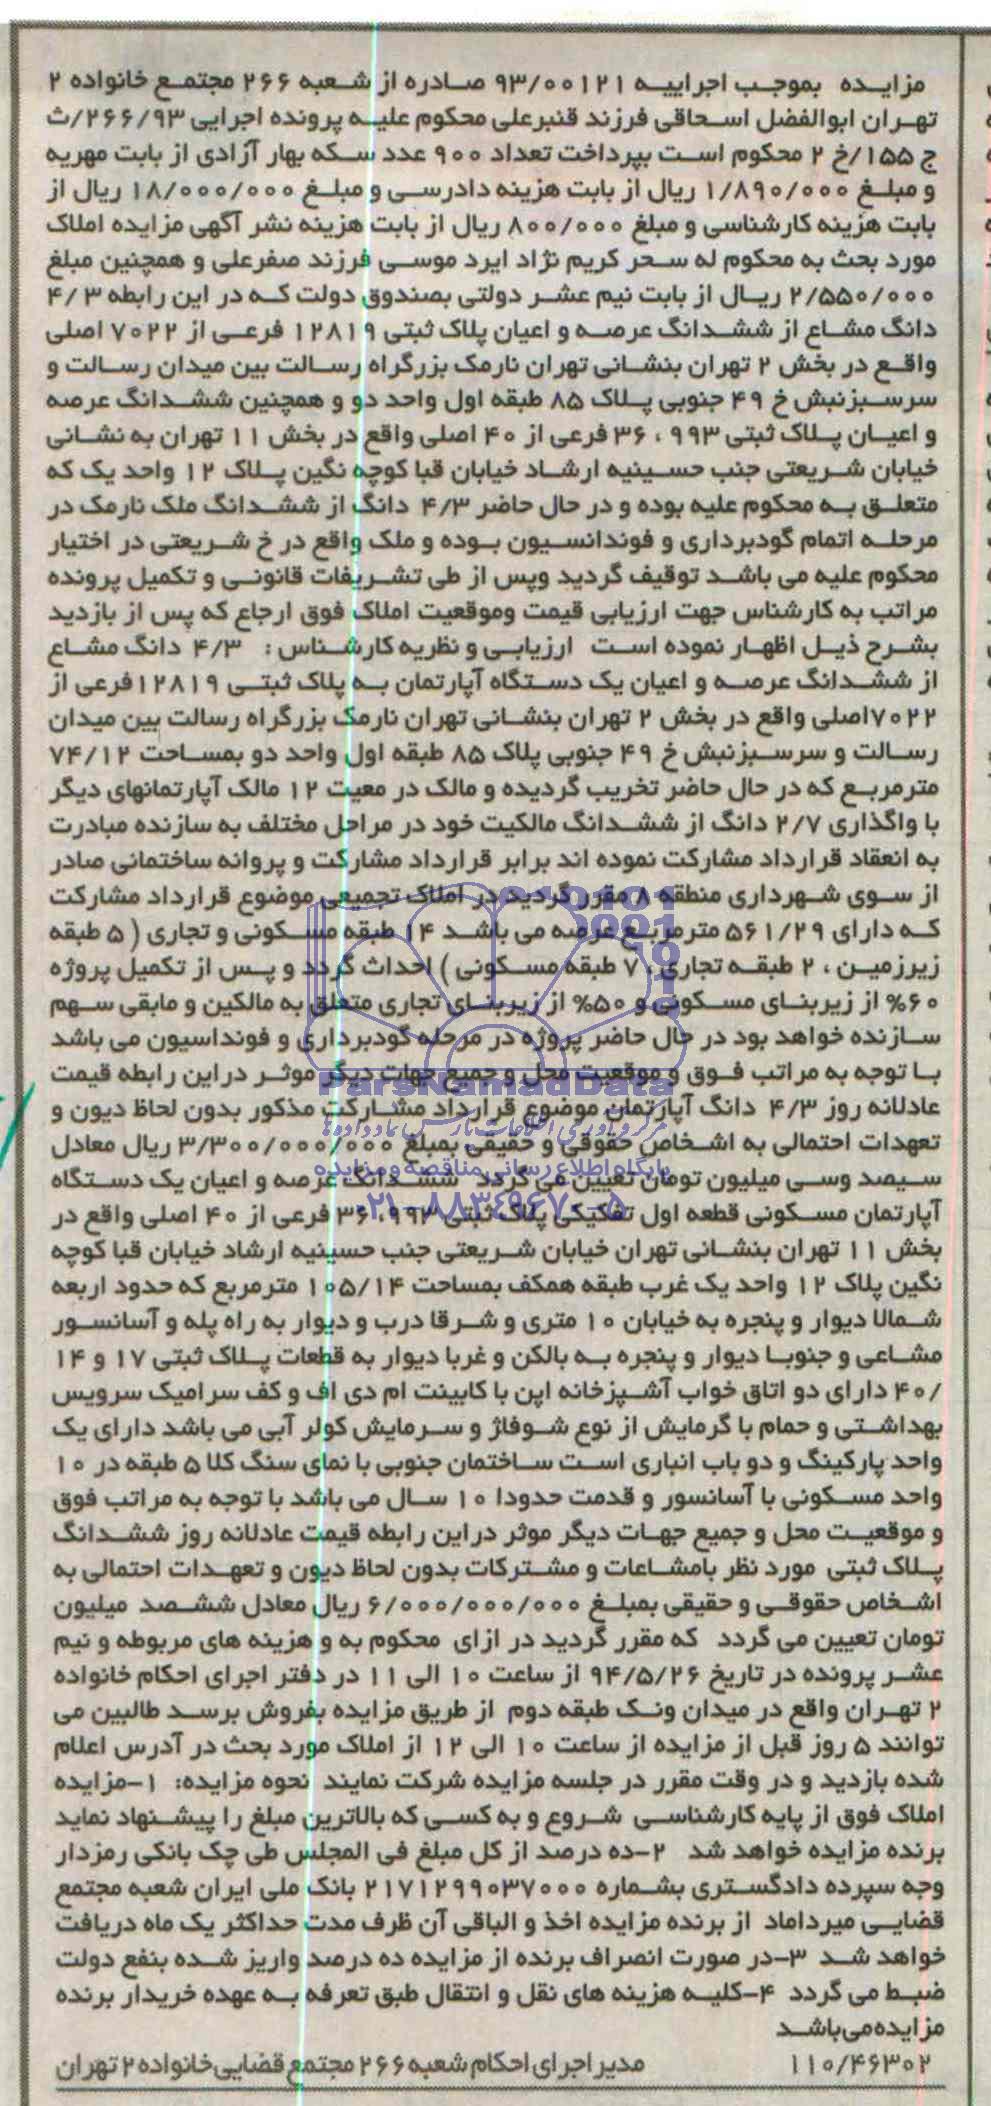 مزایده بموجب اجراییه ۹۳/۰۰۱۲۱ صادره از شعبه ۲۶۶ مجتمع خانواده ۲
تهران ابوالفضل اسحاقی فرزند قنبرعلی محکوم علیه پرونده اجرایی ۲۶۶/۹۳/ث
ج ۱۵۵/خ ۲ محکوم است بپرداخت تعداد ۹۰۰ عدد سکه بهار آزادی از بابت مهریه
و مبلغ ۱/۸۹۰/۰۰۰ ریال از بابت هزینه دادرسی و مبلغ ۱۸/۰۰۰/۰۰۰ ریال از
بابت هزینه کارشناسی و مبلغ ۸۰۰/۰۰۰ ریال از بابت هزینه نشر آگهی مزایده املاک
مورد بحث به محکوم له سحر کریم نژاد ایرد موسی فرزند صفرعلی و همچنین مبلغ
۲/۵۵۰/۰۰۰ ریال از بابت نیم عشر دولتی بصندوق دولت که در این رابطه ۴/۳
دانگ مشاع از ششدانگ عرصه و اعیان پلاک ثبتی ۱۲۸۱۹ فرعی از ۷۰۲۲ اصلی
واقع در بخش ۲ تهران بنشانی تهران نارمک بزرگراه رسالت بین میدان رسالت و
سرسبزنبش خ ۴۹ جنوبی پلاک ۸۵ طبقه اول واحد دو و همچنین ششدانگ عرصه
و اعیان پلاک ثبتی ۳۶،۹۹۳ فرعی از ۴۰ اصلی واقع در بخش ۱۱ تهران به نشانی
خیابان شریعتی جنب حسینیه ارشاد خیابان قبا کوچه نگین پلاک ۱۲ واحد یک که
متعلق به محکوم علیه بوده و در حال حاضر ۴/۳ دانگ از ششدانگ ملک نارمک در
مرحله اتمام گودبرداری و فوندانسیون بوده و ملک واقع در خ شریعتی در اختیار
محکوم علیه می باشد توقیف گردید وپس از طی تشریفات قانونی و تکمیل پرونده
مراتب به کارشناس جهت ارزیابی قیمت وموقعیت املاک فوق ارجاع که پس از بازدید
بشرح ذیل اظهار نموده است ارزیابی و نظریه کارشناس : ۴/۳ دانگ مشاع
از ششدانگ عرصه و اعیان یک دستگاه آپارتمان به پلاک ثبتی ۱۲۸۱۹فرعی از
۷۰۲۲اصلی واقع در بخش ۲ تهران بنشانی تهران نارمک بزرگراه رسالت بین میدان
رسالت و سرسبزنبش خ ۴۹ جنوبی پلاک ۸۵ طبقه اول واحد دو بمساحت ۷۴/۱۲
مترمربع که در حال حاضر تخریب گردیده و مالک در معیت ۱۲ مالک آپارتمانهای دیگر
با واگذاری ۲/۷ دانگ از ششدانگ مالکیت خود در مراحل مختلف به سازنده مبادرت
به انعقاد قرارداد مشارکت نموده اند برابر قرارداد مشارکت و پروانه ساختمانی صادر
از سوی شهرداری منطقه ۸ مقرر گردید در املاک تجمیعی موضوع قرارداد مشارکت
که دارای ۵۶۱/۲۹ مترمربع عرصه می باشد ۱۴ طبقه مسکونی و تجاری ( ۵ طبقه
زیرزمین ، ۲ طبقه تجاری ، ۷ طبقه مسکونی ) احداث گردد و پس از تکمیل پروژه
۶۰% از زیربنای مسکونی و ۵۰% از زیربنای تجاری متعلق به مالکین و مابقی سهم
سازنده خواهد بود در حال حاضر پروژه در مرحله گودبرداری و فونداسیون می باشد
با توجه به مراتب فوق و موقعیت محل و جمیع جهات دیگر موثر دراین رابطه قیمت
عادلانه روز ۴/۳ دانگ آپارتمان موضوع قرارداد مشارکت مذکور بدون لحاظ دیون و
تعهدات احتمالی به اشخاص حقوقی و حقیقی بمبلغ ۳/۳۰۰/۰۰۰/۰۰۰ ریال معادل
سیصد وسی میلیون تومان تعیین می گردد ششدانگ عرصه و اعیان یک دستگاه
آپارتمان مسکونی قطعه اول تفکیکی پلاک ثبتی ۳۶،۹۹۳ فرعی از ۴۰ اصلی واقع در
بخش ۱۱ تهران بنشانی تهران خیابان شریعتی جنب حسینیه ارشاد خیابان قبا کوچه
نگین پلاک ۱۲ واحد یک غرب طبقه همکف بمساحت ۱۰۵/۱۴ مترمربع که حدود اربعه
شمالا دیوار و پنجره به خیابان ۱۰ متری و شرقا درب و دیوار به راه پله و آسانسور
مشاعی و جنوبا دیوار و پنجره به بالکن و غربا دیوار به قطعات پلاک ثبتی ۱۷ و ۱۴
/۴۰ دارای دو اتاق خواب آشپزخانه اپن با کابینت ام دی اف و کف سرامیک سرویس
بهداشتی و حمام با گرمایش از نوع شوفاژ و سرمایش کولر آبی می باشد دارای یک
واحد پارکینگ و دو باب انباری است ساختمان جنوبی با نمای سنگ کلا ۵ طبقه در ۱۰
واحد مسکونی با آسانسور و قدمت حدودا ۱۰ سال می باشد با توجه به مراتب فوق
و موقعیت محل و جمیع جهات دیگر موثر دراین رابطه قیمت عادلانه روز ششدانگ
پلاک ثبتی مورد نظر بامشاعات و مشترکات بدون لحاظ دیون و تعهدات احتمالی به
اشخاص حقوقی و حقیقی بمبلغ ۶/۰۰۰/۰۰۰/۰۰۰ ریال معادل ششصد میلیون
تومان تعیین می گردد که مقرر گردید در ازای محکوم به و هزینه های مربوطه و نیم
عشر پرونده در تاریخ ۹۴/۵/۲۶ از ساعت ۱۰ الی ۱۱ در دفتر اجرای احکام خانواده
۲ تهران واقع در میدان ونک طبقه دوم از طریق مزایده بفروش برسد طالبین می
توانند ۵ روز قبل از مزایده از ساعت ۱۰ الی ۱۲ از املاک مورد بحث در آدرس اعلام
شده بازدید و در وقت مقرر در جلسه مزایده شرکت نمایند نحوه مزایده: ۱-مزایده
املاک فوق از پایه کارشناسی شروع و به کسی که بالاترین مبلغ را پیشنهاد نماید
برنده مزایده خواهد شد ۲-ده درصد از کل مبلغ فی المجلس طی چک بانکی رمزدار
وجه سپرده دادگستری بشماره ۲۱۷۱۲۹۹۰۳۷۰۰۰ بانک ملی ایران شعبه مجتمع
قضایی میرداماد از برنده مزایده اخذ و الباقی آن ظرف مدت حداکثر یک ماه دریافت
خواهد شد ۳-در صورت انصراف برنده از مزایده ده درصد واریز شده بنفع دولت
ضبط می گردد ۴-کلیه هزینه های نقل و انتقال طبق تعرفه به عهده خریدار برنده
مزایده می‌باشد
۱۱۰/۴۶۳۰۲ مدیر اجرای احکام شعبه ۲۶۶ مجتمع قضایی خانواده ۲ تهران
ParsNamadData
پایگاه اطلاع رسانی مناقصه و مزایده
۰۲۱-۸۸۳۴۹۶۷۰-۵